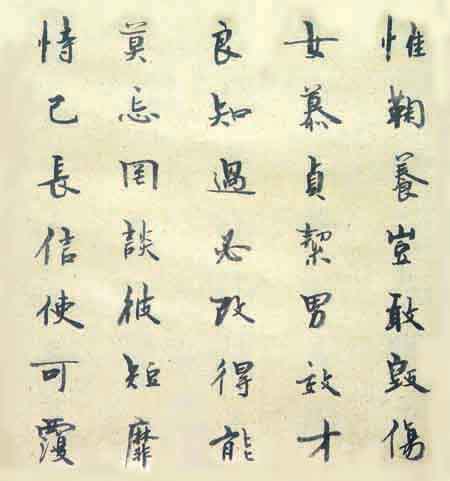 惟鞠養豈敢毀傷
女慕貞絜男效才
良知過必改得能
莫忘罔談彼短靡
恃己長信使可覆